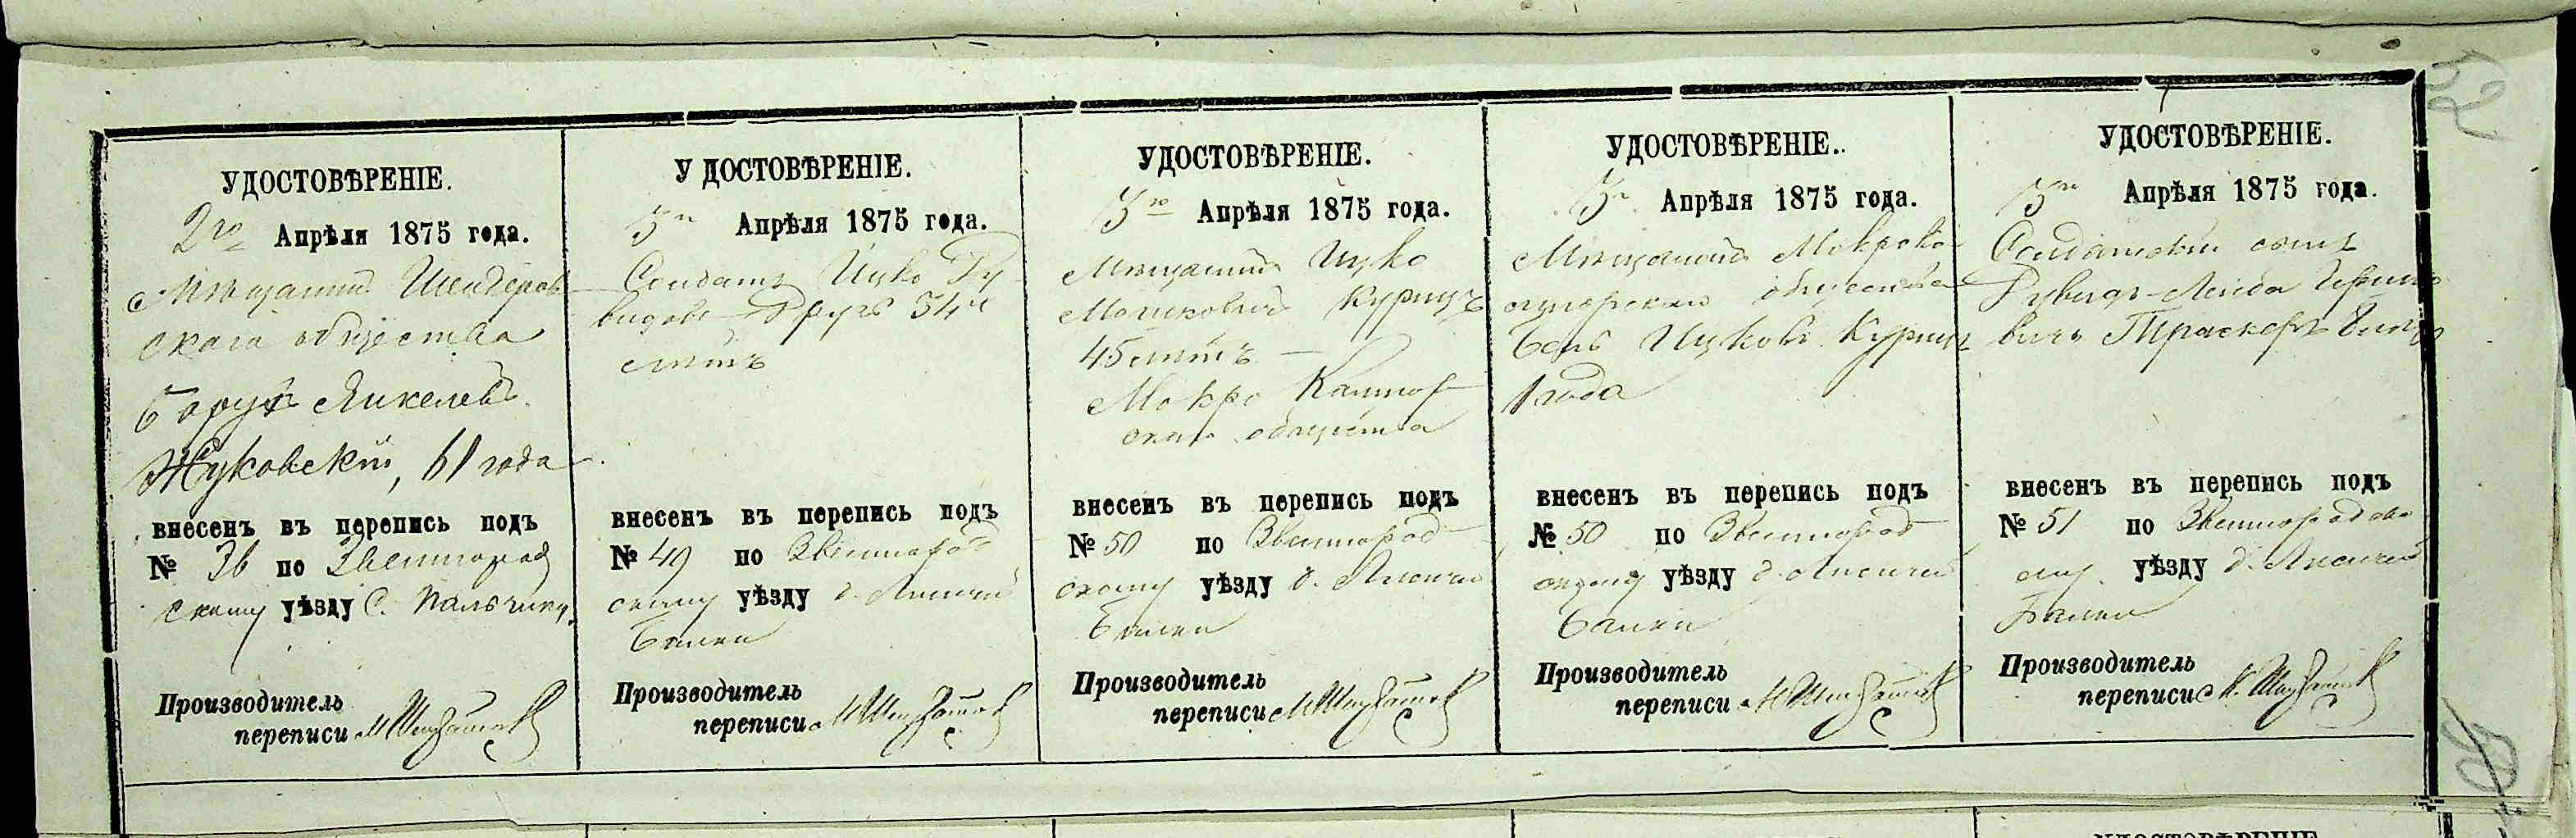 УДОСТОВѢРЕНІЕ.
2го Апрѣля 1875 года.
Мѣщанинъ Шендеров
скаго общества
Борухъ Янкелевъ
Жуковскій, 61 года
внесенъ въ перепись подъ
№ 36 по Звенигород
скому уѣзду С. Пальчику.
Производитель
переписи
УДОСТОВѢРЕНІЕ.
3го Апрѣля 1875 года.
Солдатъ Ицко Ру
видовъ 34х
лѣтъ
внесенъ въ перепись подъ
№ 49 по Звенигород
скому уѣзду д. Лисичей
Балки
Производитель
переписи
УДОСТОВѢРЕНІЕ.
3го Апрѣля 1875 года.
Мѣщанинъ Ицко
Мошковичъ Курицъ
45 лѣтъ
Мокро Калигор
скаго общества
внесенъ въ перепись подъ
№ 50 по Звенигород
скому уѣзду д. Лисичей
Балки
Производитель
переписи
УДОСТОВѢРЕНІЕ.
3го Апрѣля 1875 года.
Мѣщанинъ Мокрока
лигорскаго общества
Беръ Ицковъ Курицъ
1 года
внесенъ въ перепись подъ
№ 50 по Звенигород
скому уѣзду д. Лисичей
Балки
Производитель
переписи
УДОСТОВѢРЕНІЕ.
3го Апрѣля 1875 года.
Солдатскій сынъ
Рувинъ-Лейба
вичъ
внесенъ въ перепись подъ
№ 51 по Звенигородско
му уѣзду д. Лисичей
Балки
Производитель
переписи